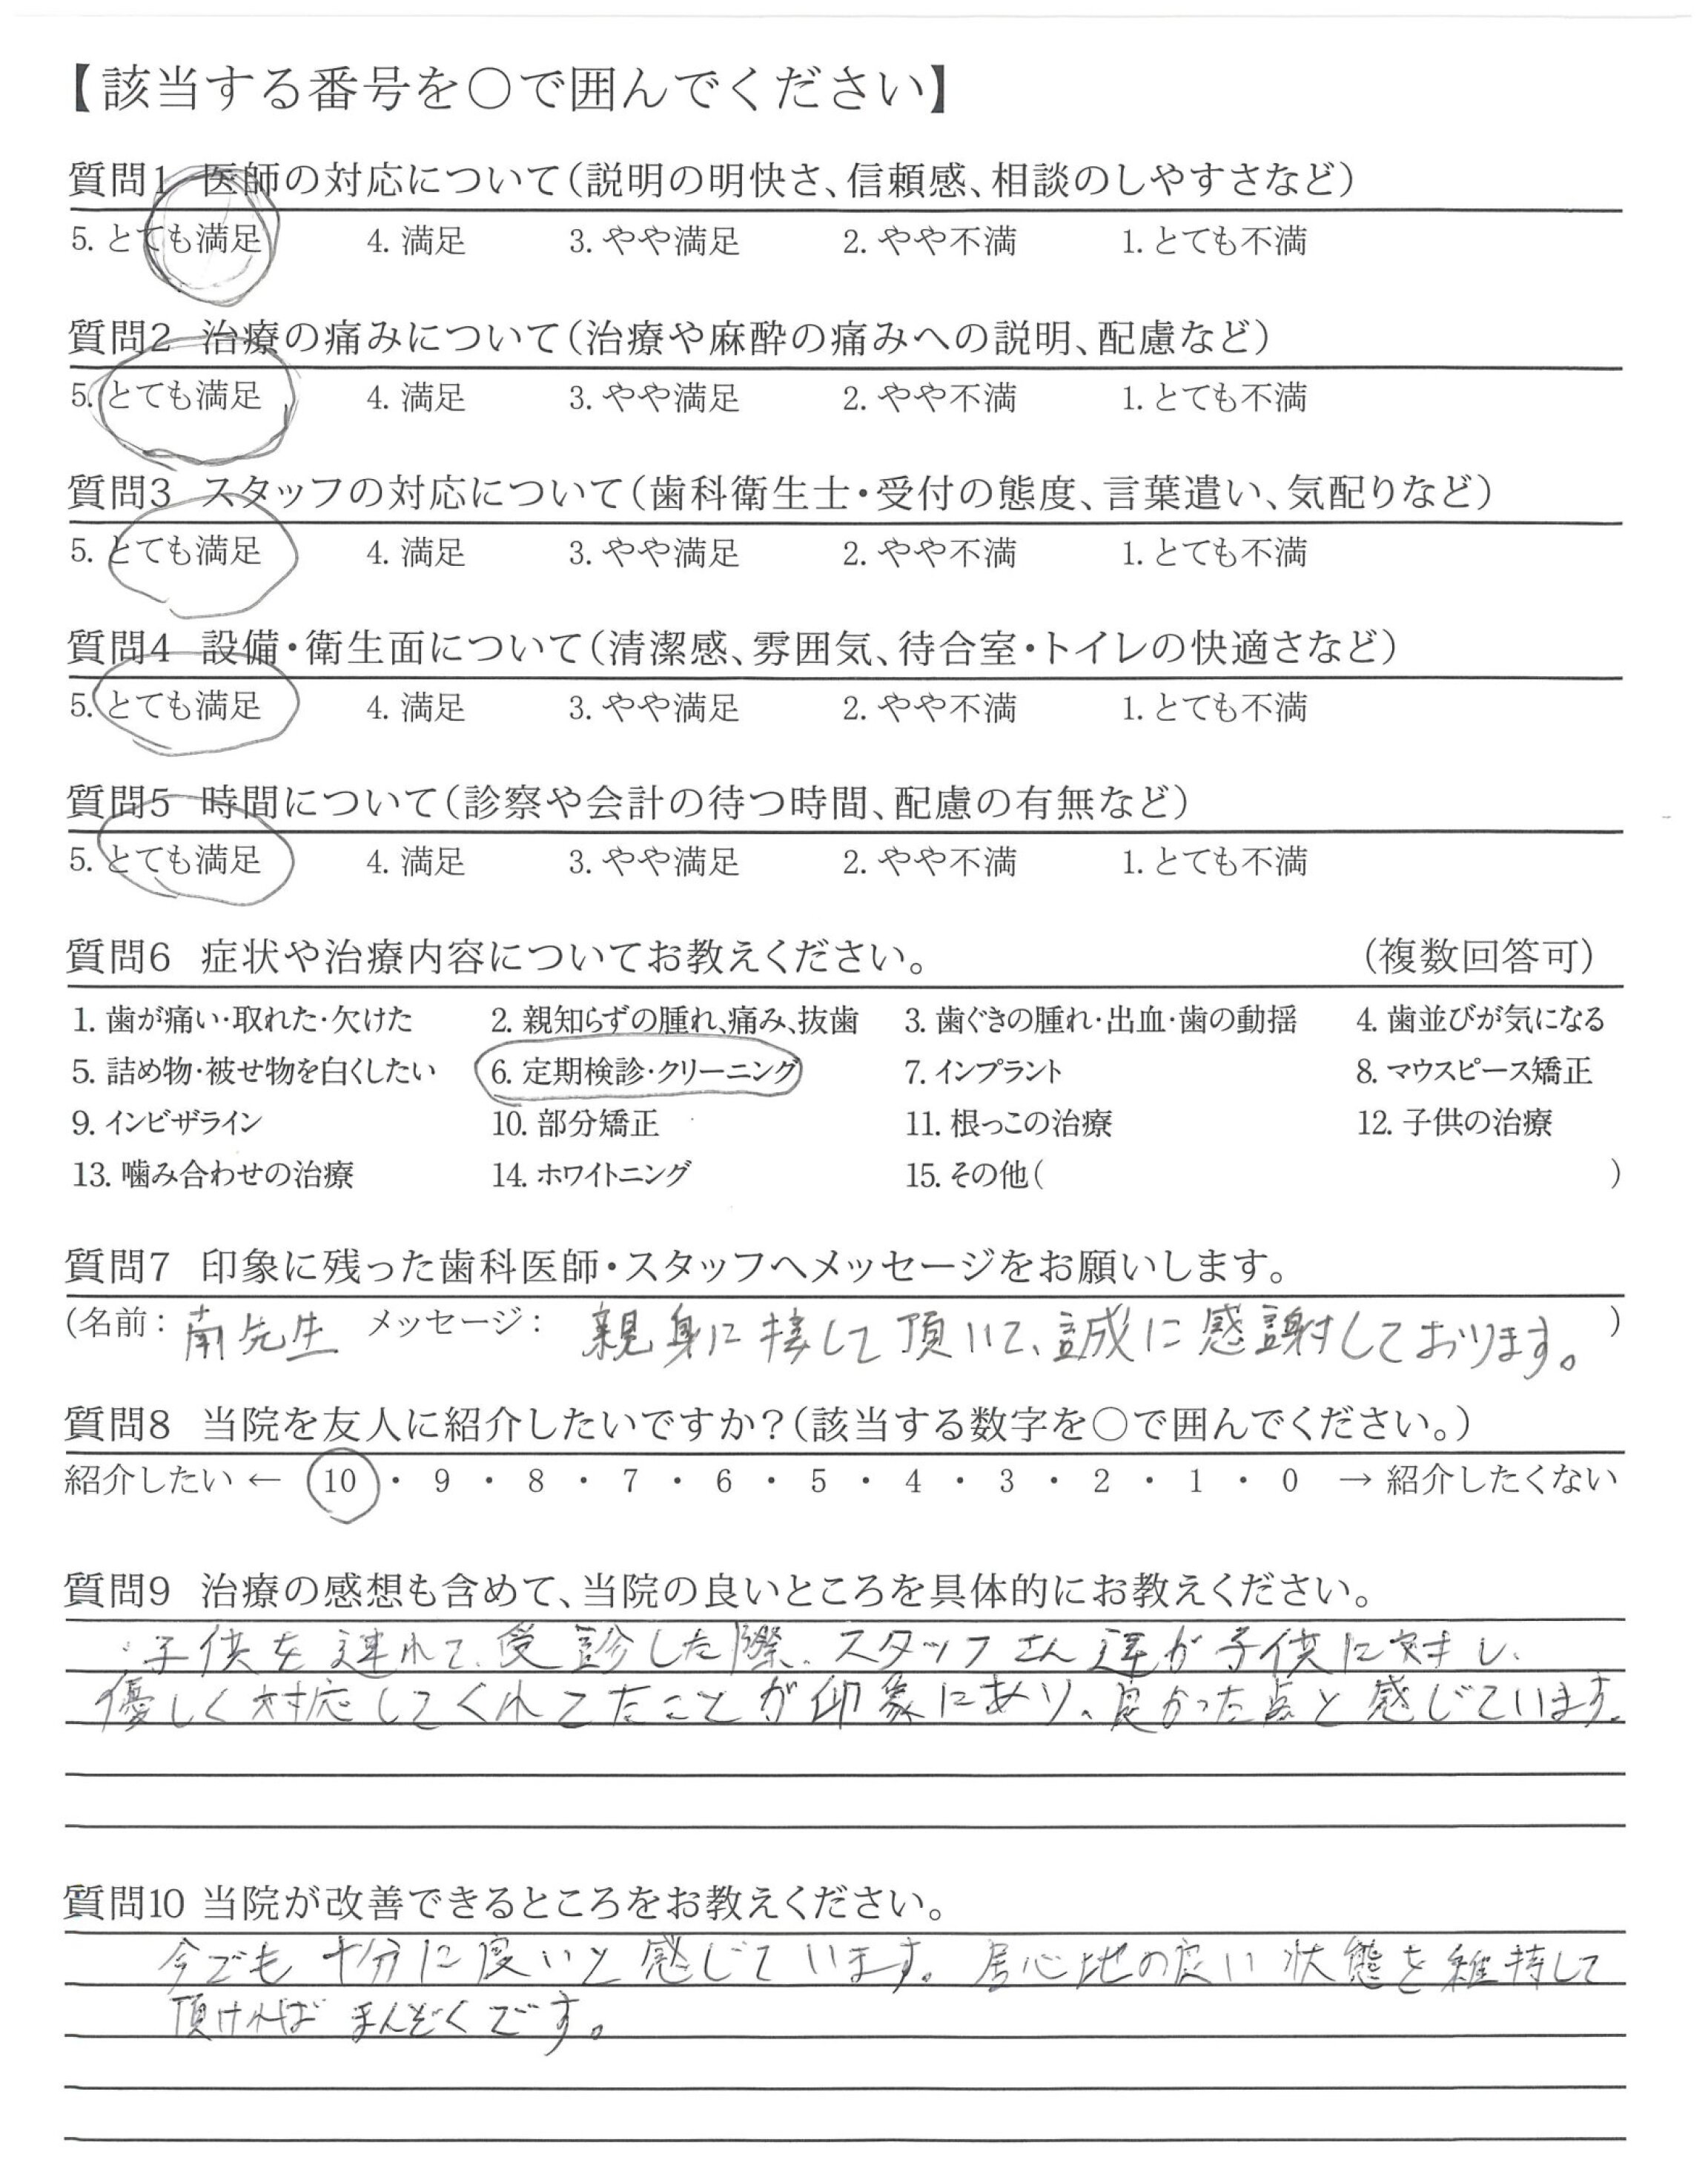 【該当する番号を○で囲んでください】
質問1 医師の対応について(説明の明快さ、信頼感、相談のしやすさなど)
5. とても満足 4. 満足 3. やや満足 2. やや不満 1. とても不満
質問2 治療の痛みについて(治療や麻酔の痛みへの説明、配慮など)
5. とても満足 4. 満足 3. やや満足 2. やや不満 1. とても不満
質問3 スタッフの対応について(歯科衛生士・受付の態度、言葉遣い、気配りなど)
5. とても満足 4. 満足 3. やや満足 2. やや不満 1. とても不満
質問4 設備・衛生面について(清潔感、雰囲気、待合室・トイレの快適さなど)
5. とても満足 4. 満足 3. やや満足 2. やや不満 1. とても不満
質問5 時間について(診察や会計の待つ時間、配慮の有無など)
5. とても満足 4. 満足 3. やや満足 2. やや不満 1. とても不満
質問6 症状や治療内容についてお教えください。 (複数回答可)
1. 歯が痛い・取れた・欠けた 2. 親知らずの腫れ、痛み、抜歯 3. 歯ぐきの腫れ・出血・歯の動揺 4. 歯並びが気になる
5. 詰め物・被せ物を白くしたい 6. 定期検診・クリーニング 7. インプラント 8. マウスピース矯正
9. インビザライン 10. 部分矯正 11. 根っこの治療 12. 子供の治療
13. 噛み合わせの治療 14. ホワイトニング 15. その他( )
質問7 印象に残った歯科医師・スタッフへメッセージをお願いします。
(名前: 南先生 メッセージ: 親身に接して頂いて、誠に感謝しております。 )
質問8 当院を友人に紹介したいですか?(該当する数字を○で囲んでください。)
紹介したい ← 10 ・ 9 ・ 8 ・ 7 ・ 6 ・ 5 ・ 4 ・ 3 ・ 2 ・ 1 ・ 0 → 紹介したくない
質問9 治療の感想も含めて、当院の良いところを具体的にお教えください。
・子供を連れて、受診した際、スタッフさん達が子供に対し、
優しく対応してくれてたことが印象にあり、良かった点と感じています。
質問10 当院が改善できるところをお教えください。
今でも十分に良いと感じています。居心地の良い状態を維持して
頂ければまんぞくです。